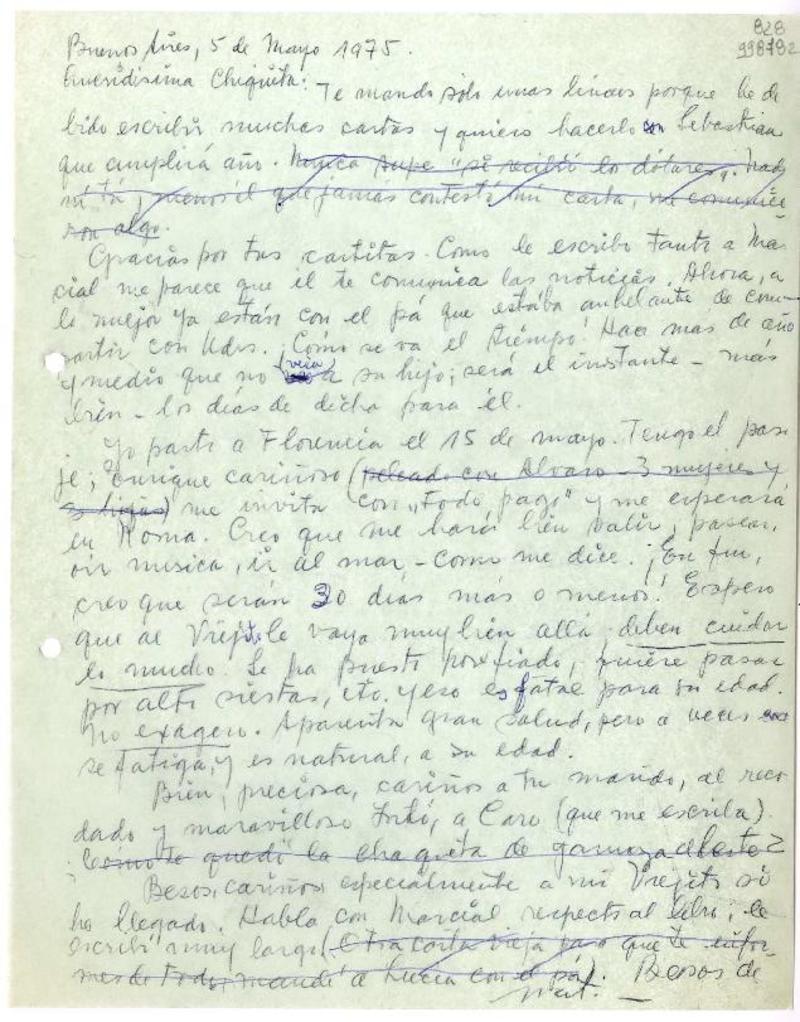 828
998782
Buenos Aires, 5 de Mayo 1975.
Queridísima Chiquita: Te mando sólo unas líneas porque he de
bido escribir muchas cartas y quiero hacerlo con Sebastian
que cumplirá año. Nunca supe "si recibió lo dólares". Nadie
ni tú, menos él que jamás contestó mi carta, me comunica
ron algo.
Gracias por tus cartitas. Como le escribo tanto a Mar
cial me parece que él te comunica las noticias. Ahora, a
lo mejor ya están con el pá que estaba anhelante de com-
partir con Uds. ¡Cómo se va el tiempo! Hace mas de año
y medio que no (veía) a su hijo; será el instante - más
bién - los días de dicha para él.
Yo parto a Florencia el 15 de mayo. Tengo el pasa
je; Enrique cariñoso (peleado con Alvaro - 3 mujeres y
hijas) me invita con "Todo pago" y me esperará
en Roma. Creo que me hará bien salir, pasear,
oir musica, ir al mar - como me dice. ¡En fin,
creo que serán 30 días más o menos! Espero
que al Viejito le vaya muy bien allá. deben cuidar
lo mucho. Se ha puesto porfiado, quiere pasar
por alto siestas, etc. y eso es fatal para su edad.
No exagero. Aparenta gran salud, pero a veces
se fatiga, y es natural, a su edad.
Bien, preciosa, cariños a tu marido, al recor
dado y maravilloso a Caro (que me escriba).
Cómo te quedó la chaqueta de gamuza
Besos, cariños, especialmente a mi Viejito si
ha llegado. Habla con Marcial respecto al libro; le
escribí muy largo. (Otra carta vieja para que te infor
mes de todo, mandé a Lucía con el pá). Besos de